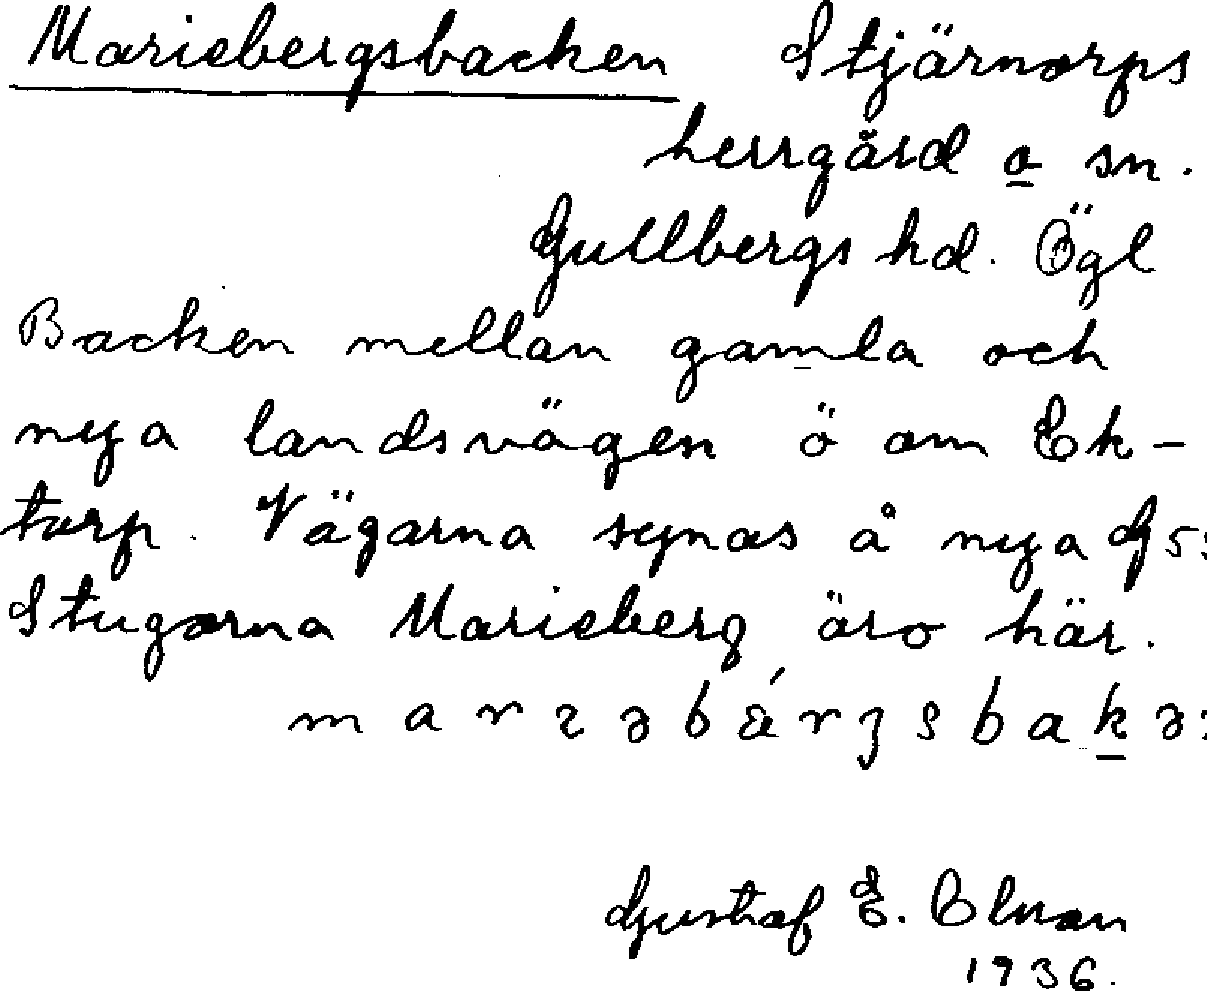 Mariebergsbacken Stjärnorps
herrgård o sn.
Gullbergs hd. Ögl
Backen mellan gamla och
nya landsvägen ö om Ek-
torp. Vägarna synas å nya
Stugorna Marieberg äro här.
Gustaf E.
1936.